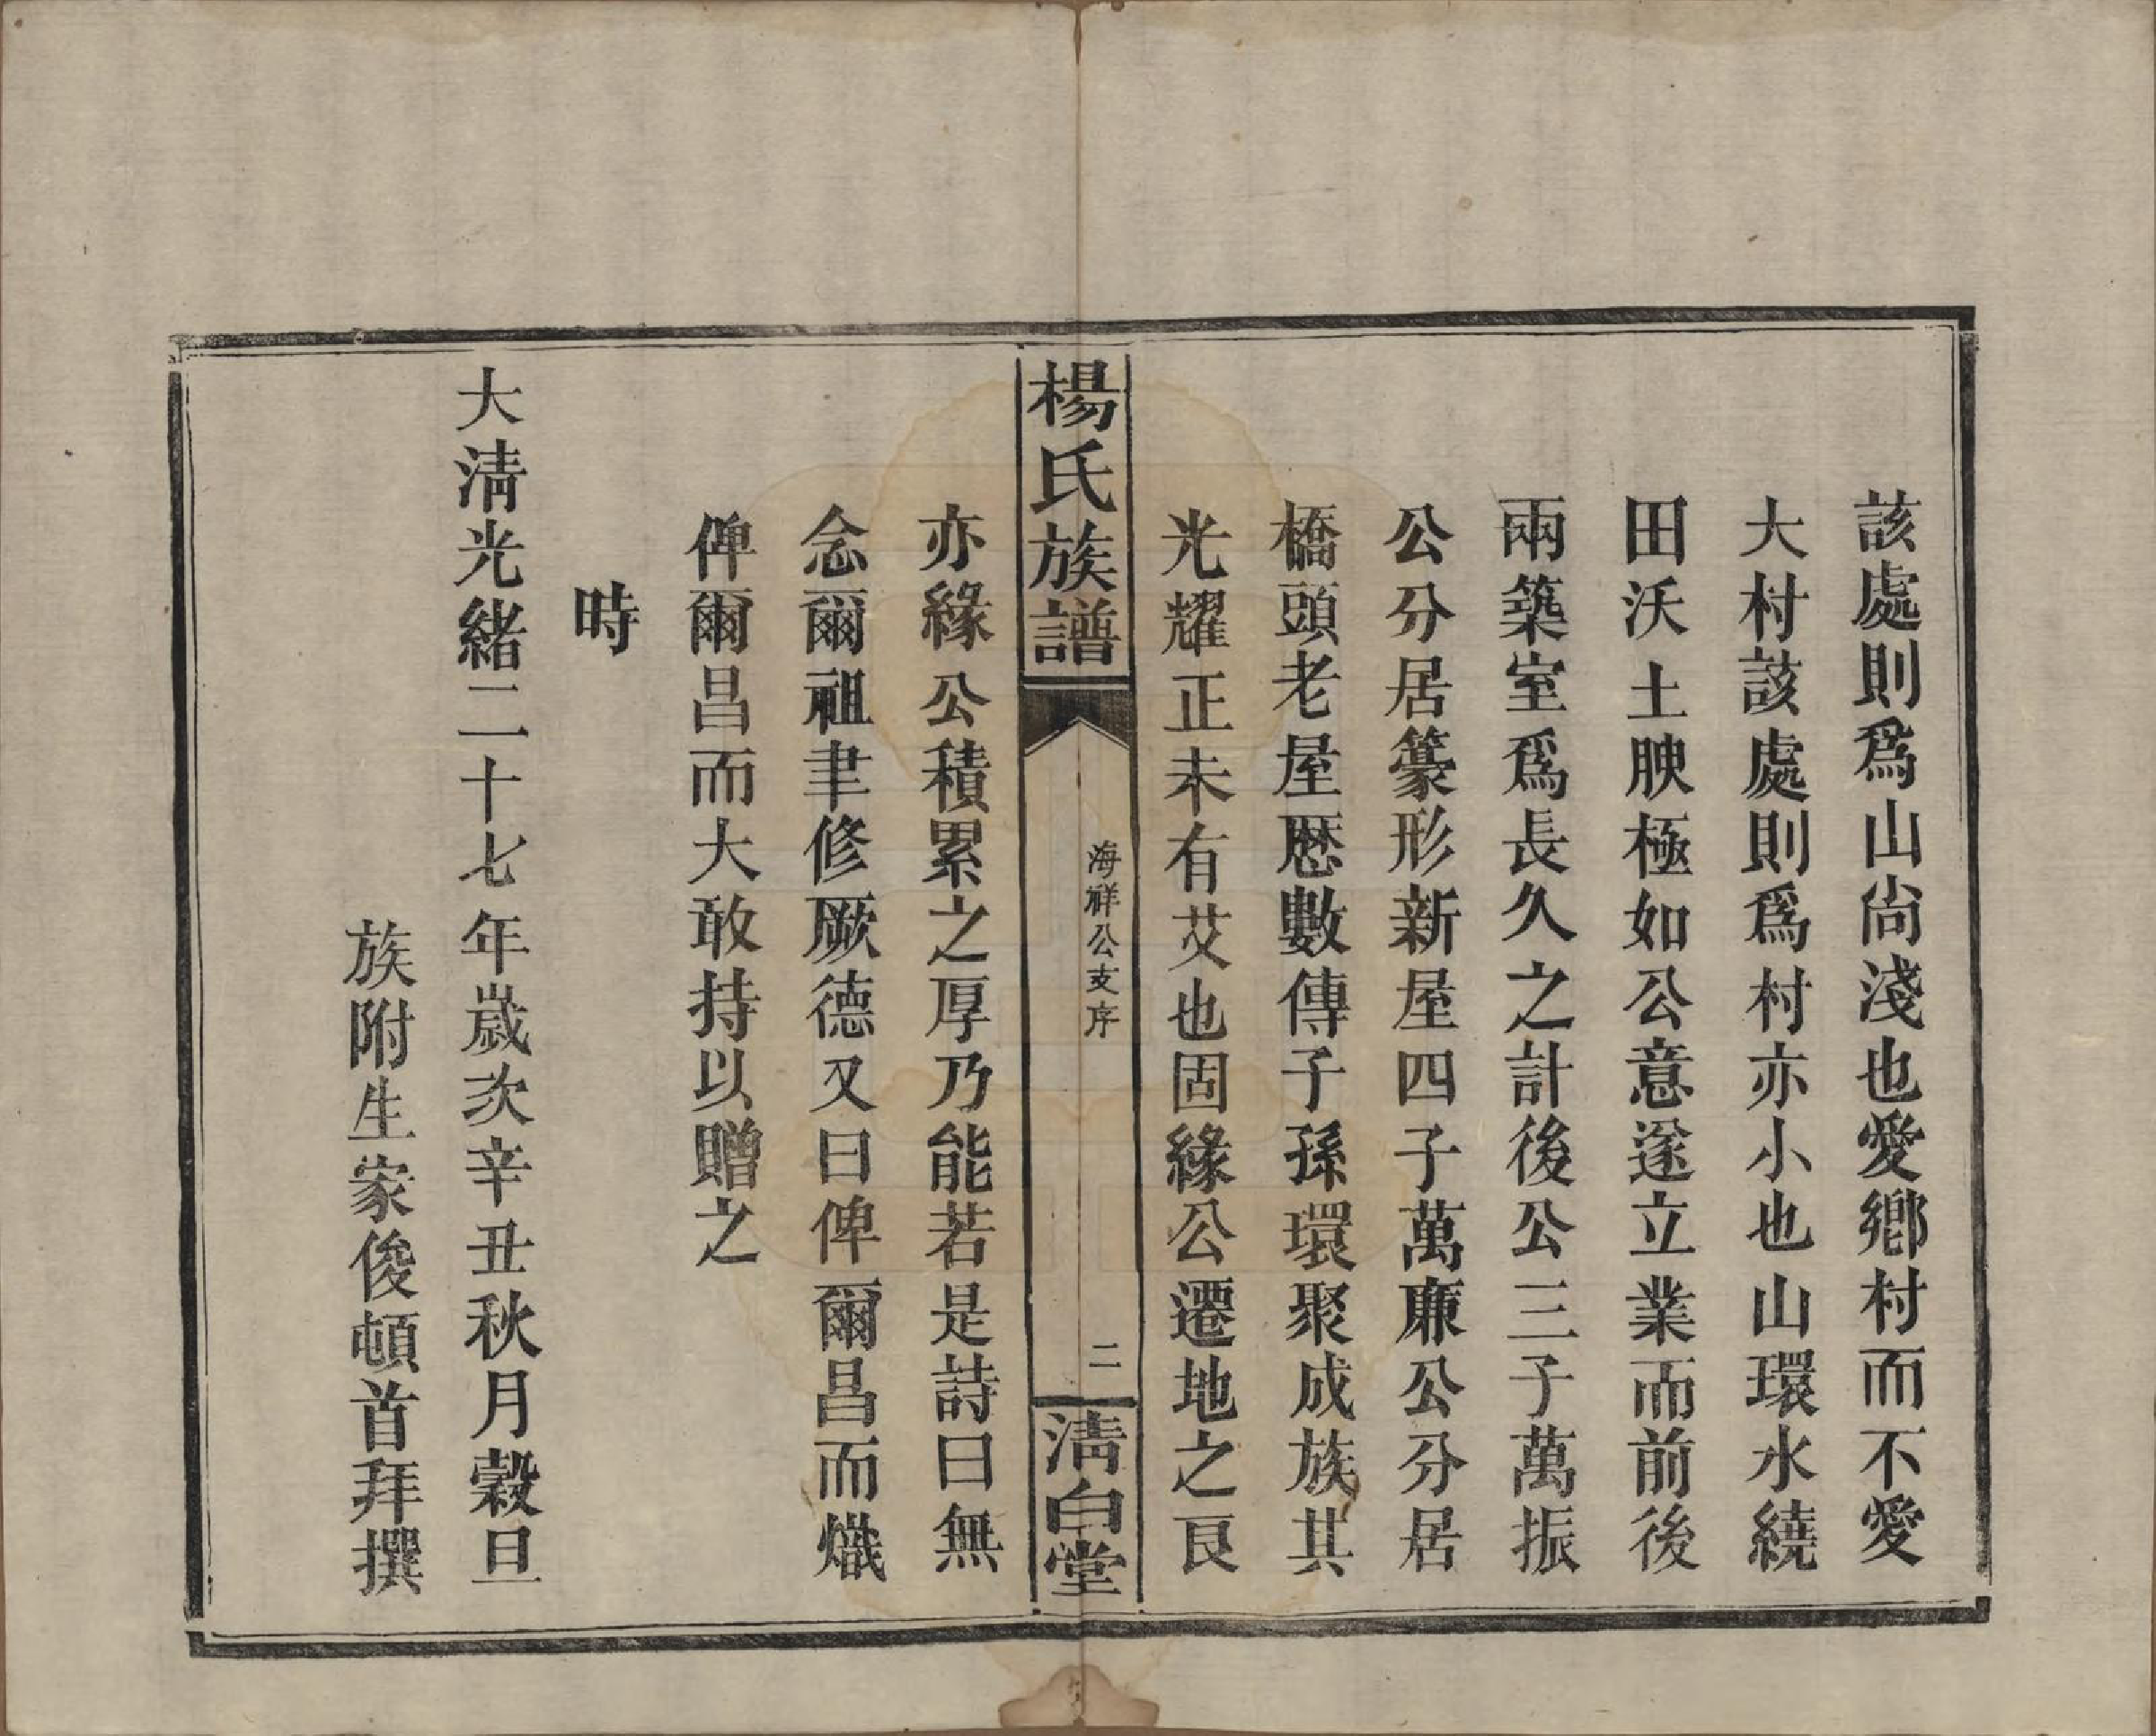 該處則爲山尙淺也愛鄕村而不愛
大村該處則爲村亦小也山環水繞
田沃土腴極如公意遂立業而前後
兩築室爲長久之計後公三子萬振
公分居篆形新屋四子萬廉公分居
橋頭老屋歷數傳子孫環聚成族其
光耀正未有艾也固緣公遷地之良
楊氏族譜
海祥公支序
二
淸白堂
亦緣公積累之厚乃能若是詩曰無
念爾祖聿修厥德又曰俾爾昌而熾
俾爾昌而大敢持以贈之
時
大淸光緒二十七年歲次辛丑秋月穀旦
族附生家俊頓首拜撰